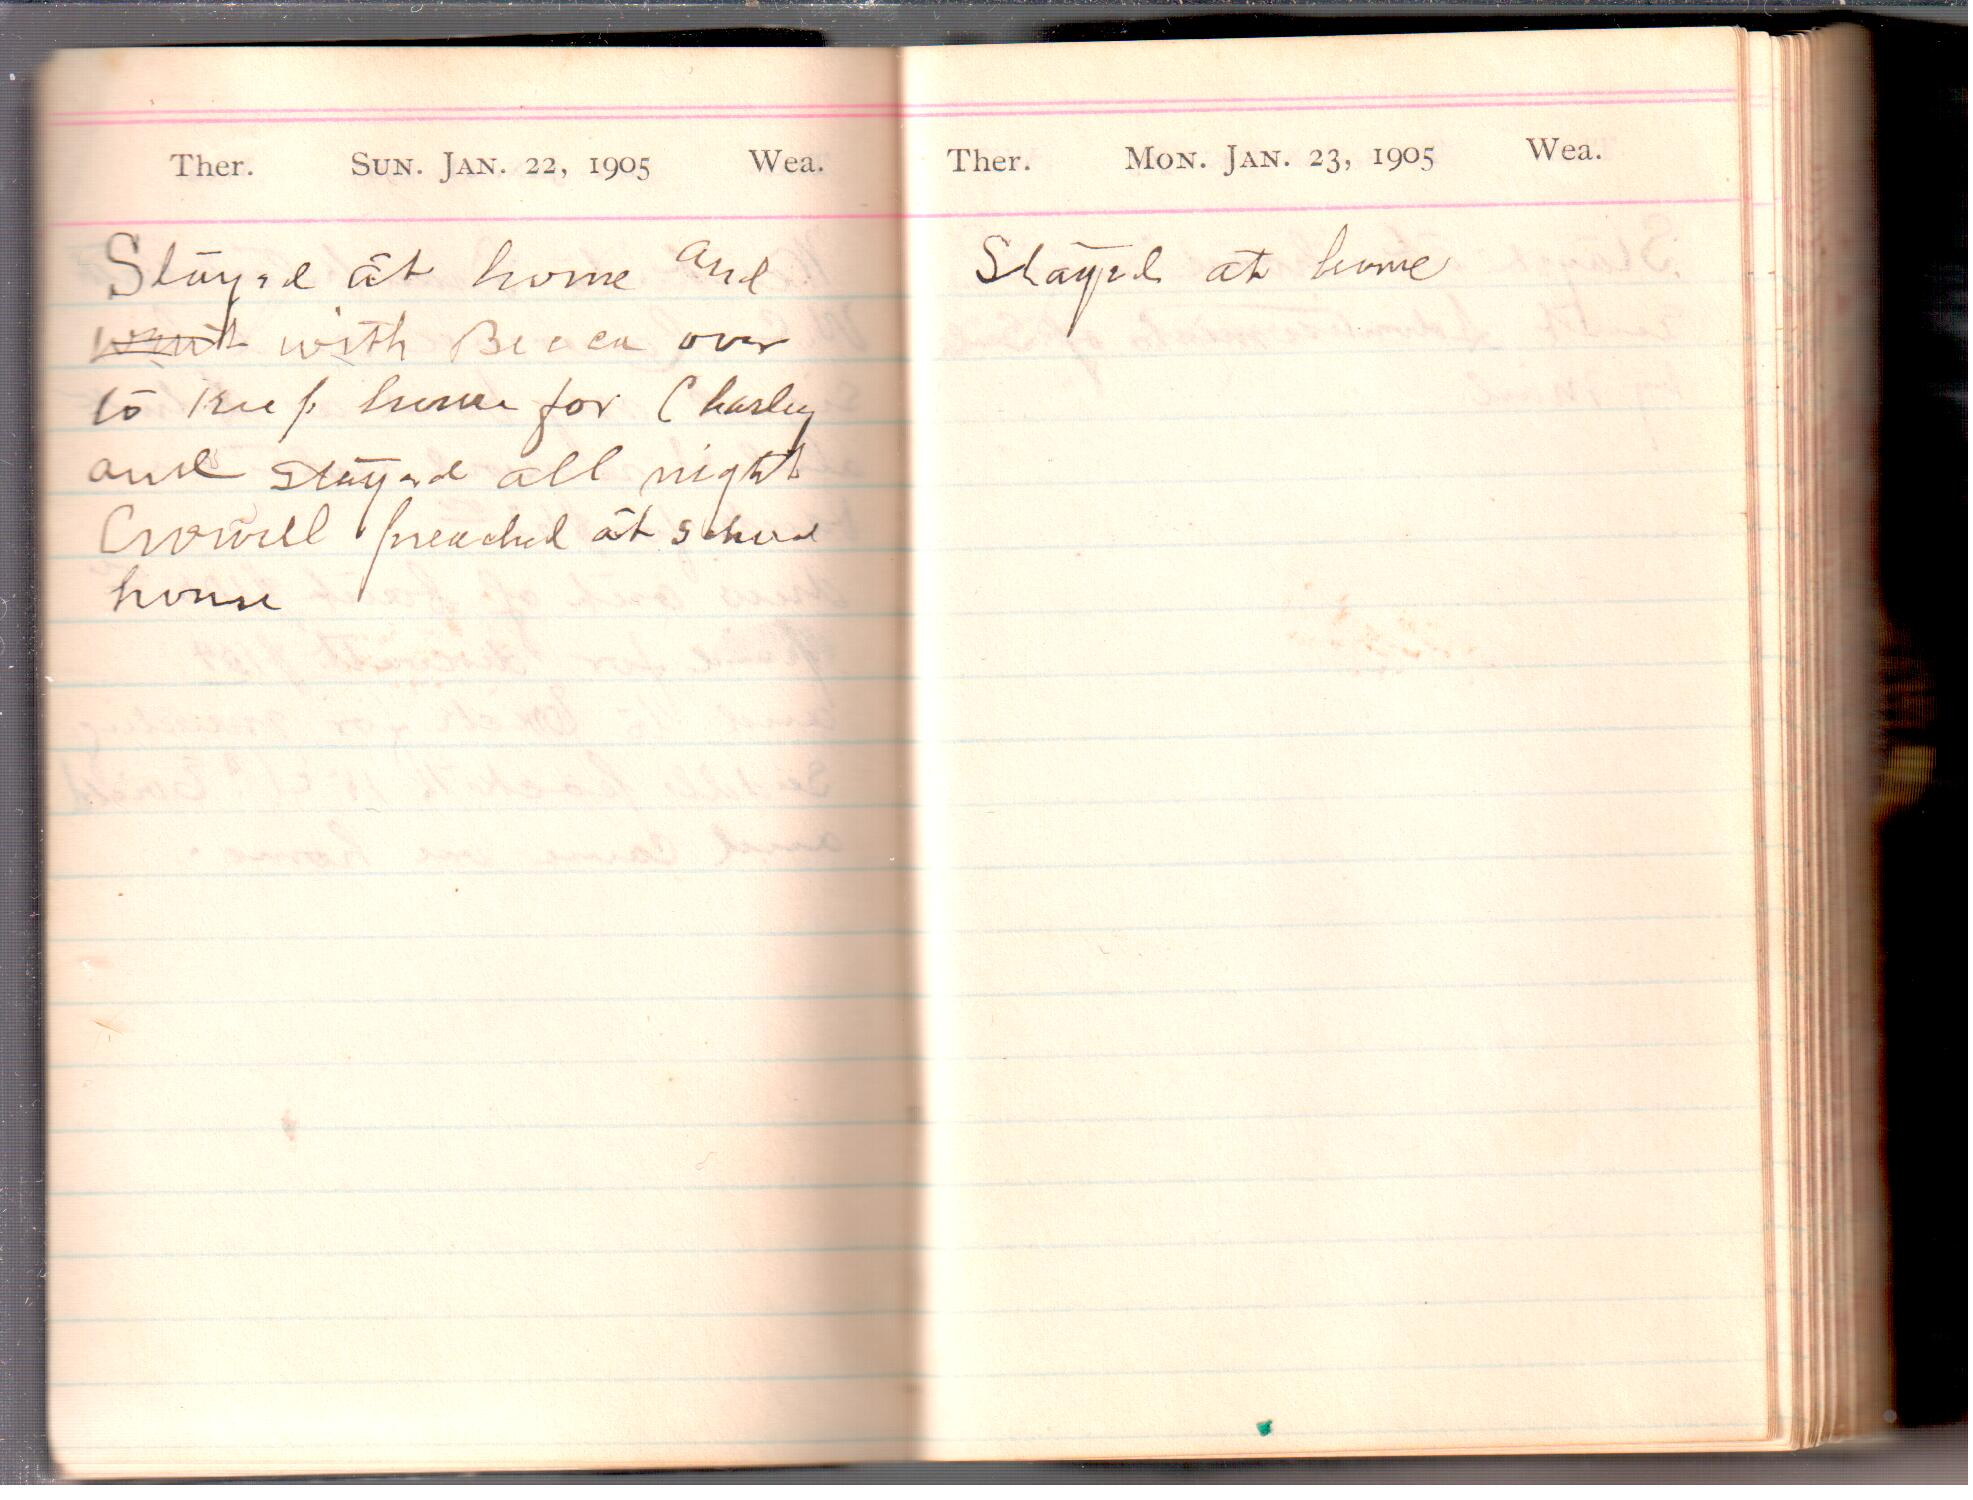 Ther. SUN. JAN. 22, 1905 Wea.
Stayed at home and
went with Becca over
to keep house for Charley
and stayed all night
Crowell preached at school
house
Ther. MON. JAN. 23, 1905 Wea.
Stayed at home